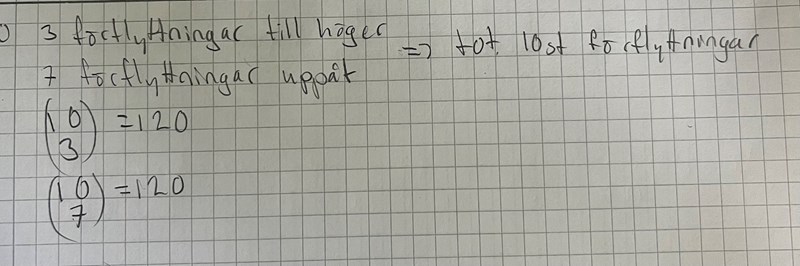 ) 3 förflyttningar till höger => tot. 10st förflyttningar
7 förflyttningar uppåt
(10 3) = 120
(10 7) = 120